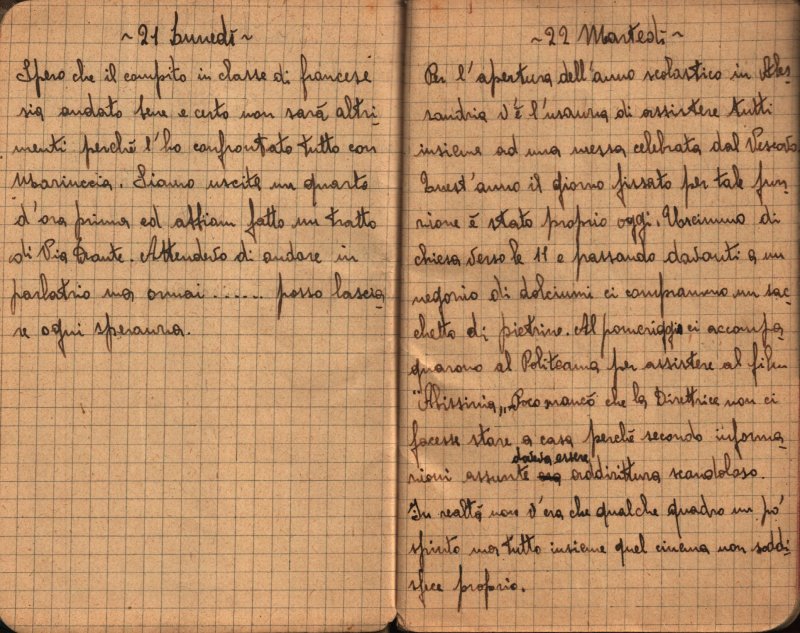 ~ 21 Lunedì ~
Spero che il compito in classe di francese
sia andato bene e certo non sarà altri-
menti perché l'ho confrontato tutto con
Mariuccia. Siamo uscite un quarto
d'ora prima ed abbiam fatto un tratto
di Via Dante. Attendevo di andare in
parlatorio ma ormai ...... posso lascia-
re ogni speranza.
~ 22 Martedì ~
Per l'apertura dell'anno scolastico in Ales-
sandria v'è l'usanza di assistere tutti
insieme ad una messa celebrata dal Vescovo.
Quest'anno il giorno fissato per tale fun-
zione è stato proprio oggi. Uscimmo di
chiesa verso le 11 e passando davanti a un
negozio di dolciumi ci comprammo un sac-
chetto di pietrine. Al pomeriggio ci accompa-
gnarono al Politeama per assistere al film
"Abissinia„. Poco mancò che la Direttrice non ci
facesse stare a casa perché secondo informa-
zioni assunte doveva essere addirittura scandoloso.
In realtà non v'era che qualche quadro un pò'
spinto ma tutto insieme quel cinema non soddi-
sfece proprio.